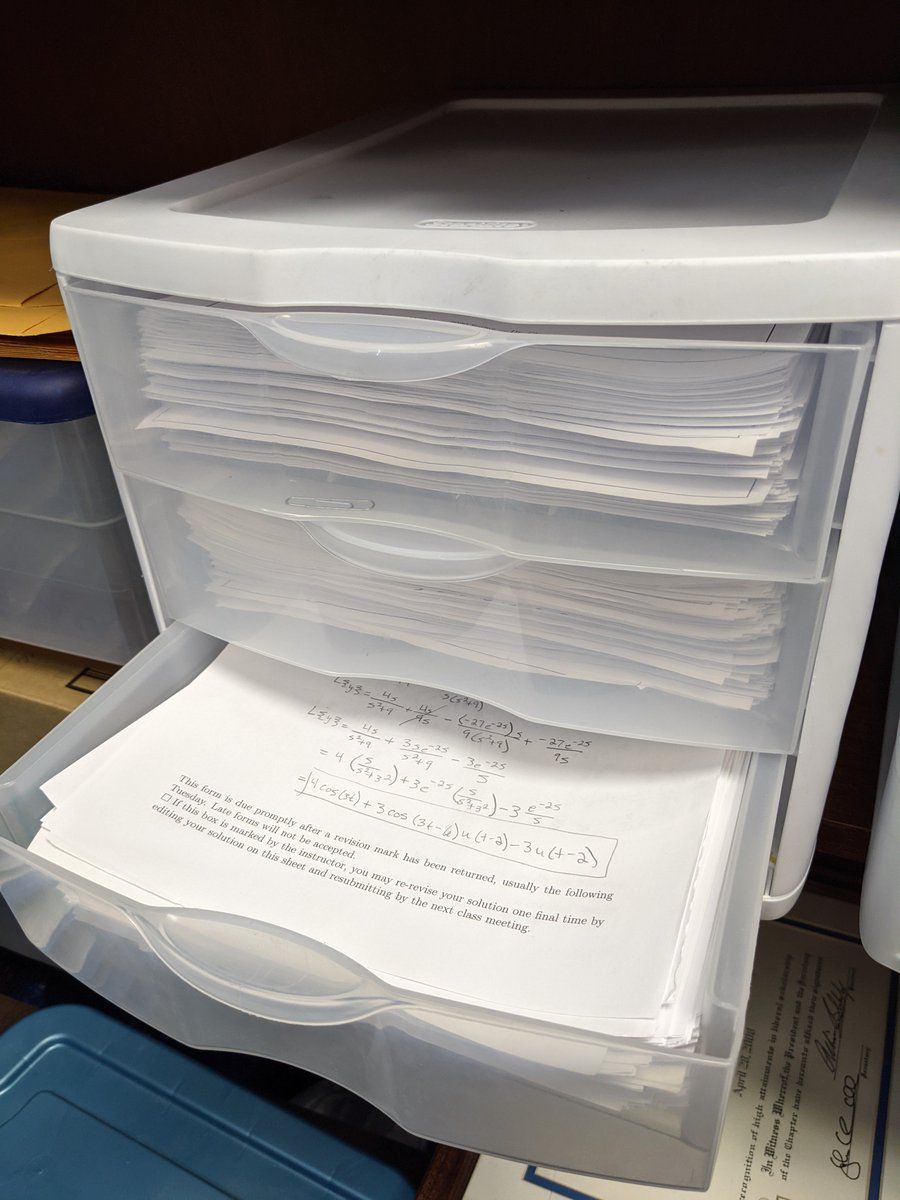 L{y} = 4s/(s²+9) + 4s/9s - (-27e^-2s)s/9(s²+9) + -27e^-2s/9s
s(s²+9)
L{y} = 4s/(s²+9) + 3se^-2s/(s²+9) - 3e^-2s/s
= 4 (s/(s²+3²)) + 3e^-2s (s/(s²+3²)) - 3 e^-2s/s
= 4 cos(3t) + 3 cos (3t-6) u(t-2) - 3u(t-2)
This form is due promptly after a revision mark has been returned, usually the following
Tuesday. Late forms will not be accepted.
☐ If this box is marked by the instructor, you may re-revise your solution one final time by
editing your solution on this sheet and resubmitting by the next class meeting.
April 20, 2000
recognition of high attainments in liberal scholarship
In Witness Whereof, the President and the Secretary
of the Chapter have hereunto affixed their signatures
Secretary